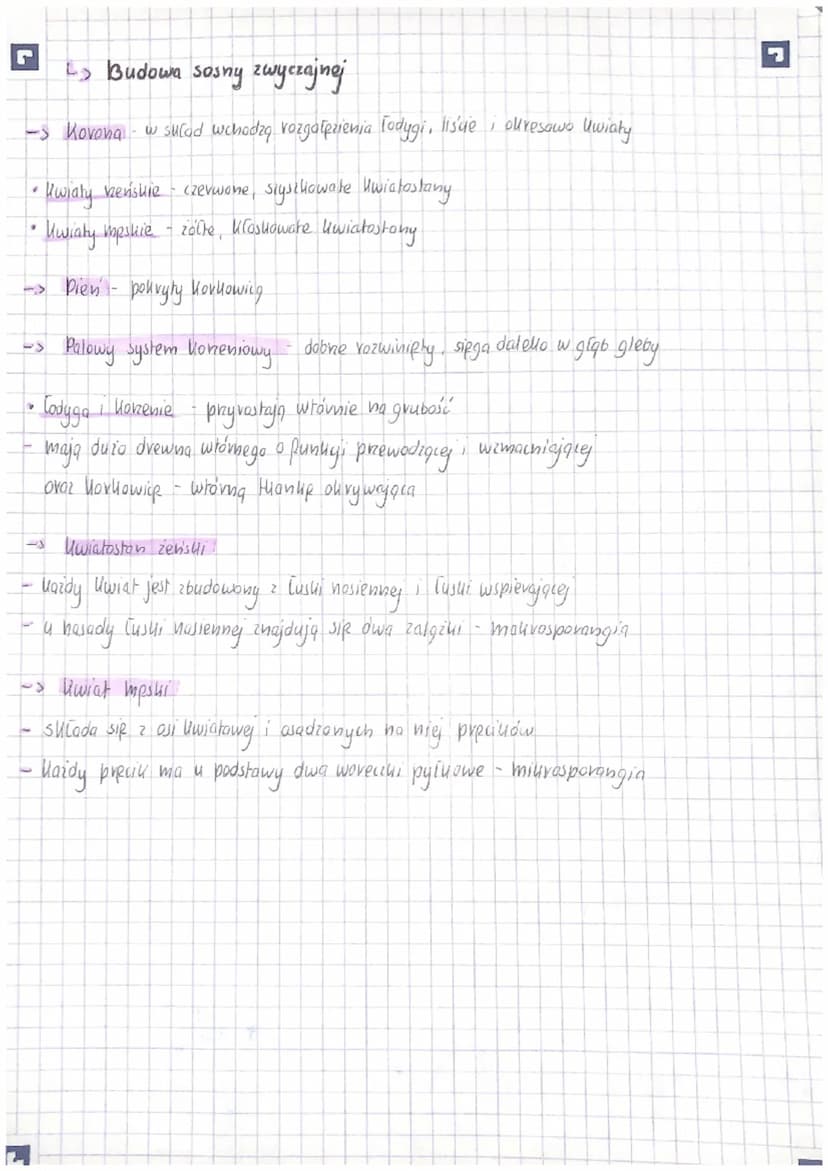 ↳ Budowa sosny zwyczajnej
-> Korona - w skład wchodzą rozgałęzienia łodygi, liście i okresowo kwiaty
• Kwiaty żeńskie - czerwone, szyszkowate kwiatostany
• Kwiaty męskie - żółte, kłoskowate kwiatostany
-> Pień - pokryty korkowicą
-> Palowy system korzeniowy - dobrze rozwinięty, sięga daleko w głąb gleby
• Łodyga i korzenie - przyrastają wtórnie na grubość
- mają dużo drewna wtórnego o funkcji przewodzącej i wzmacniającej
oraz korkowicę - wtórną tkankę okrywającą
-> Kwiatostan żeński
- każdy kwiat jest zbudowany z łuski nasiennej i łuski wspierającej
- u nasady łuski nasiennej znajdują się dwa zalążki - makrosporangia
-> Kwiat męski
- składa się z osi kwiatowej i osadzonych na niej pręcików
- Każdy pręcik ma u podstawy dwa woreczki pyłkowe - mikrosporangia